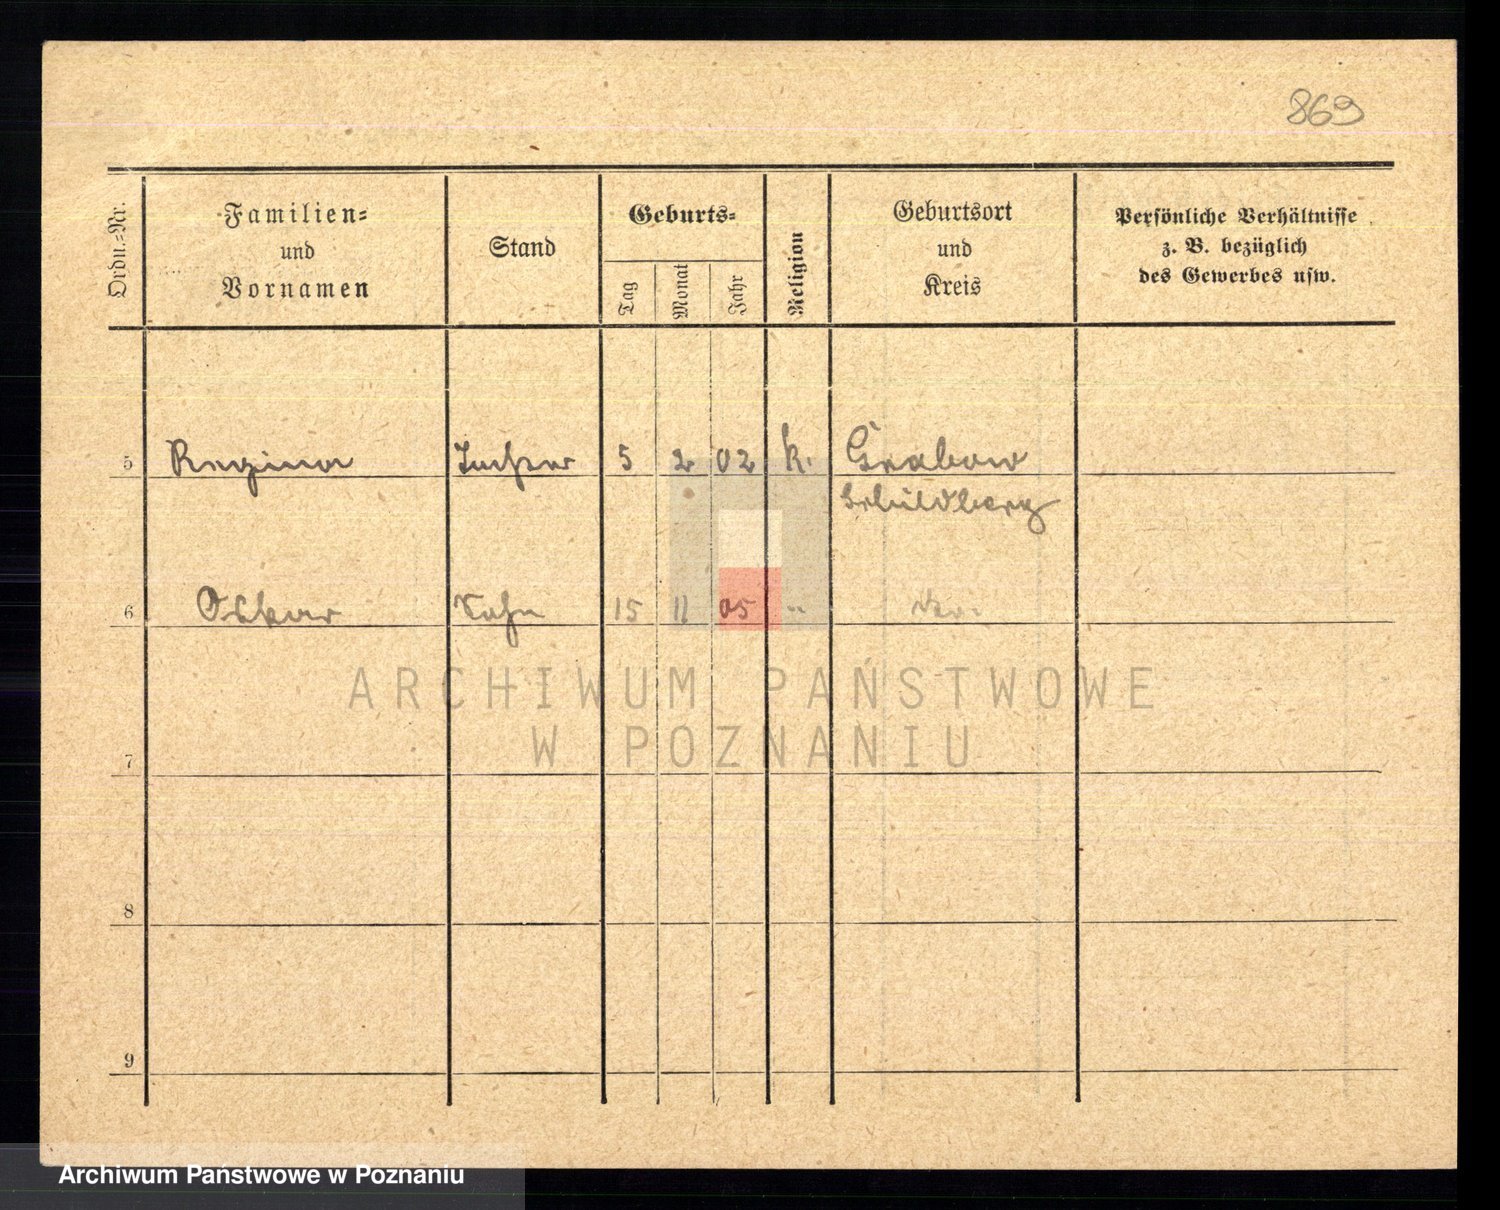 869
Ordn.-Nr.
Familien-
und
Vornamen
Stand
Geburts-
Tag
Monat
Jahr
Religion
Geburtsort
und
Kreis
Persönliche Verhältnisse
z. B. bezüglich
des Gewerbes usw.
5 Regina Tochter 5 2 02 k. Grabow
Schildberg
6 Oskar Sohn 15 11 05 "
ARCHIWUM PAŃSTWOWE
W POZNANIU
7
8
9
Archiwum Państwowe w Poznaniu